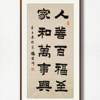 人善百福至
家和萬事興